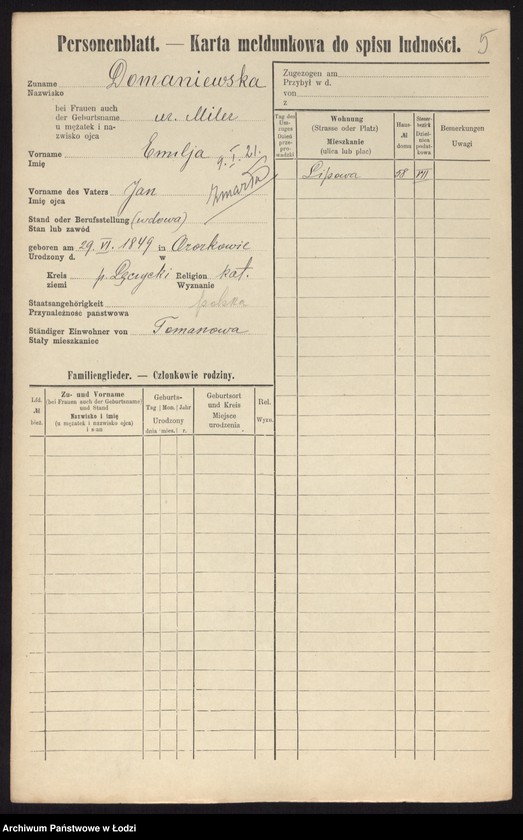 Personenblatt. — Karta meldunkowa do spisu ludności. 5
Zuname Domaniewska
Nazwisko
bei Frauen auch
der Geburtsname ur. Miler
u mężatek i na-
zwisko ojca
Vorname Emilja 9. I. 21.
Imię
zmarła
Vorname des Vaters Jan
Imię ojca
Stand oder Berufsstellung (wdowa)
Stan lub zawód
geboren am 29. VI. 1849 in Ozorkowie
Urodzony d. w
Kreis p. Łęczycki Religion kat.
ziemi Wyznanie
Staatsangehörigkeit polska
Przynależność państwowa
Ständiger Einwohner von Tomanowa
Stały mieszkaniec
Familienglieder. — Członkowie rodziny.
Lfd.
№
bież.
Zu- und Vorname
(bei Frauen auch der Geburtsname)
und Stand
Nazwisko i imię
(u mężatek i nazwisko ojca)
i stan
Geburts-
Tag Mon. Jahr
Urodzony
dnia mies. r.
Geburtsort
und Kreis
Miejsce
urodzenia
Rel.
Wyzn.
Zugezogen am
Przybył w d.
von
z
Tag des
Um-
zuges
Dzień
prze-
pro-
wadzki
Wohnung
(Strasse oder Platz)
Mieszkanie
(ulica lub plac)
Haus-
№
domu
Bemerkungen
Uwagi
Lipowa 58 VII
Archiwum Państwowe w Łodzi